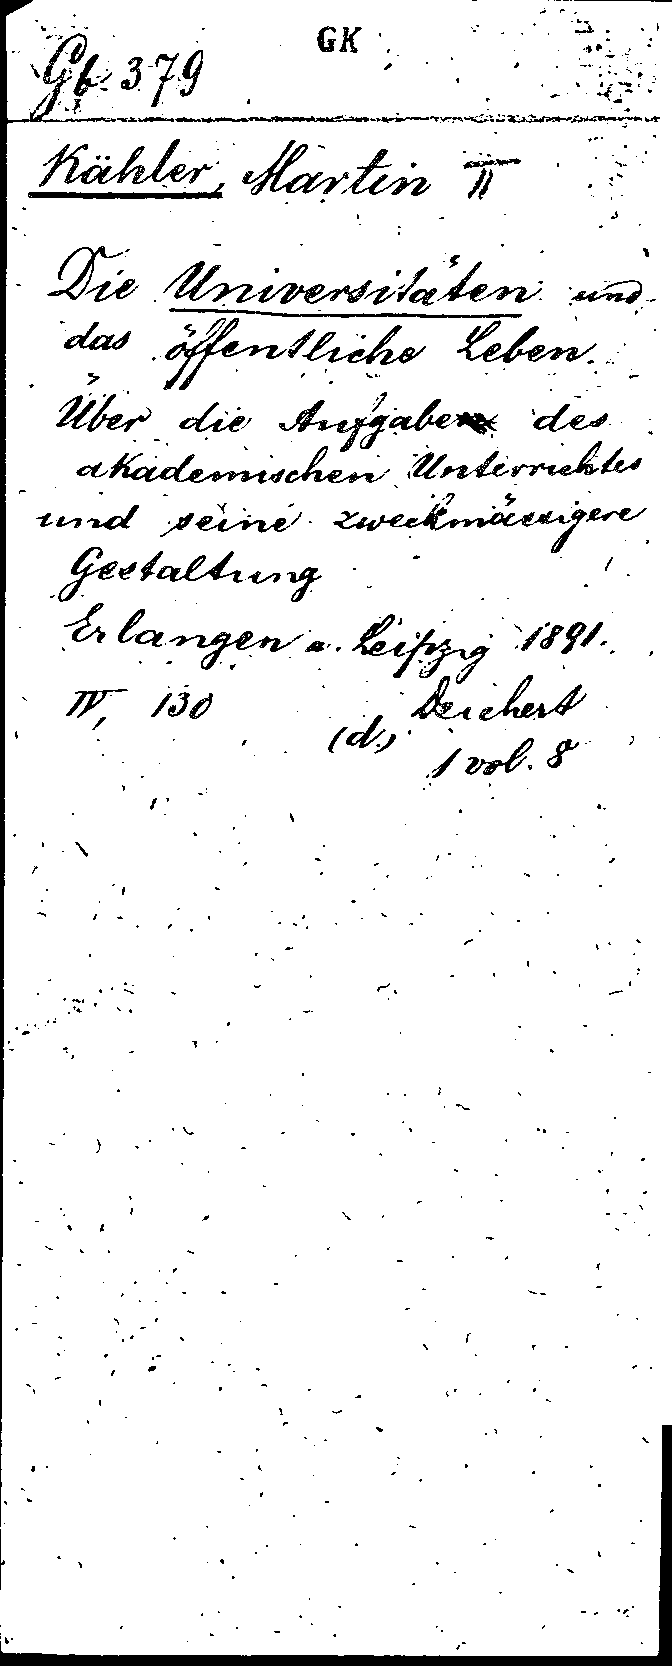 GK
Gb 379
Kähler, Martin II
Die Universitäten und
das öffentliche Leben.
Über die Aufgabe des
akademischen Unterrichtes
und seine zweckmässigere
Gestaltung
Erlangen u. Leipzig 1891.
IV, 130 Deichert
(d.) 1 vol. 8